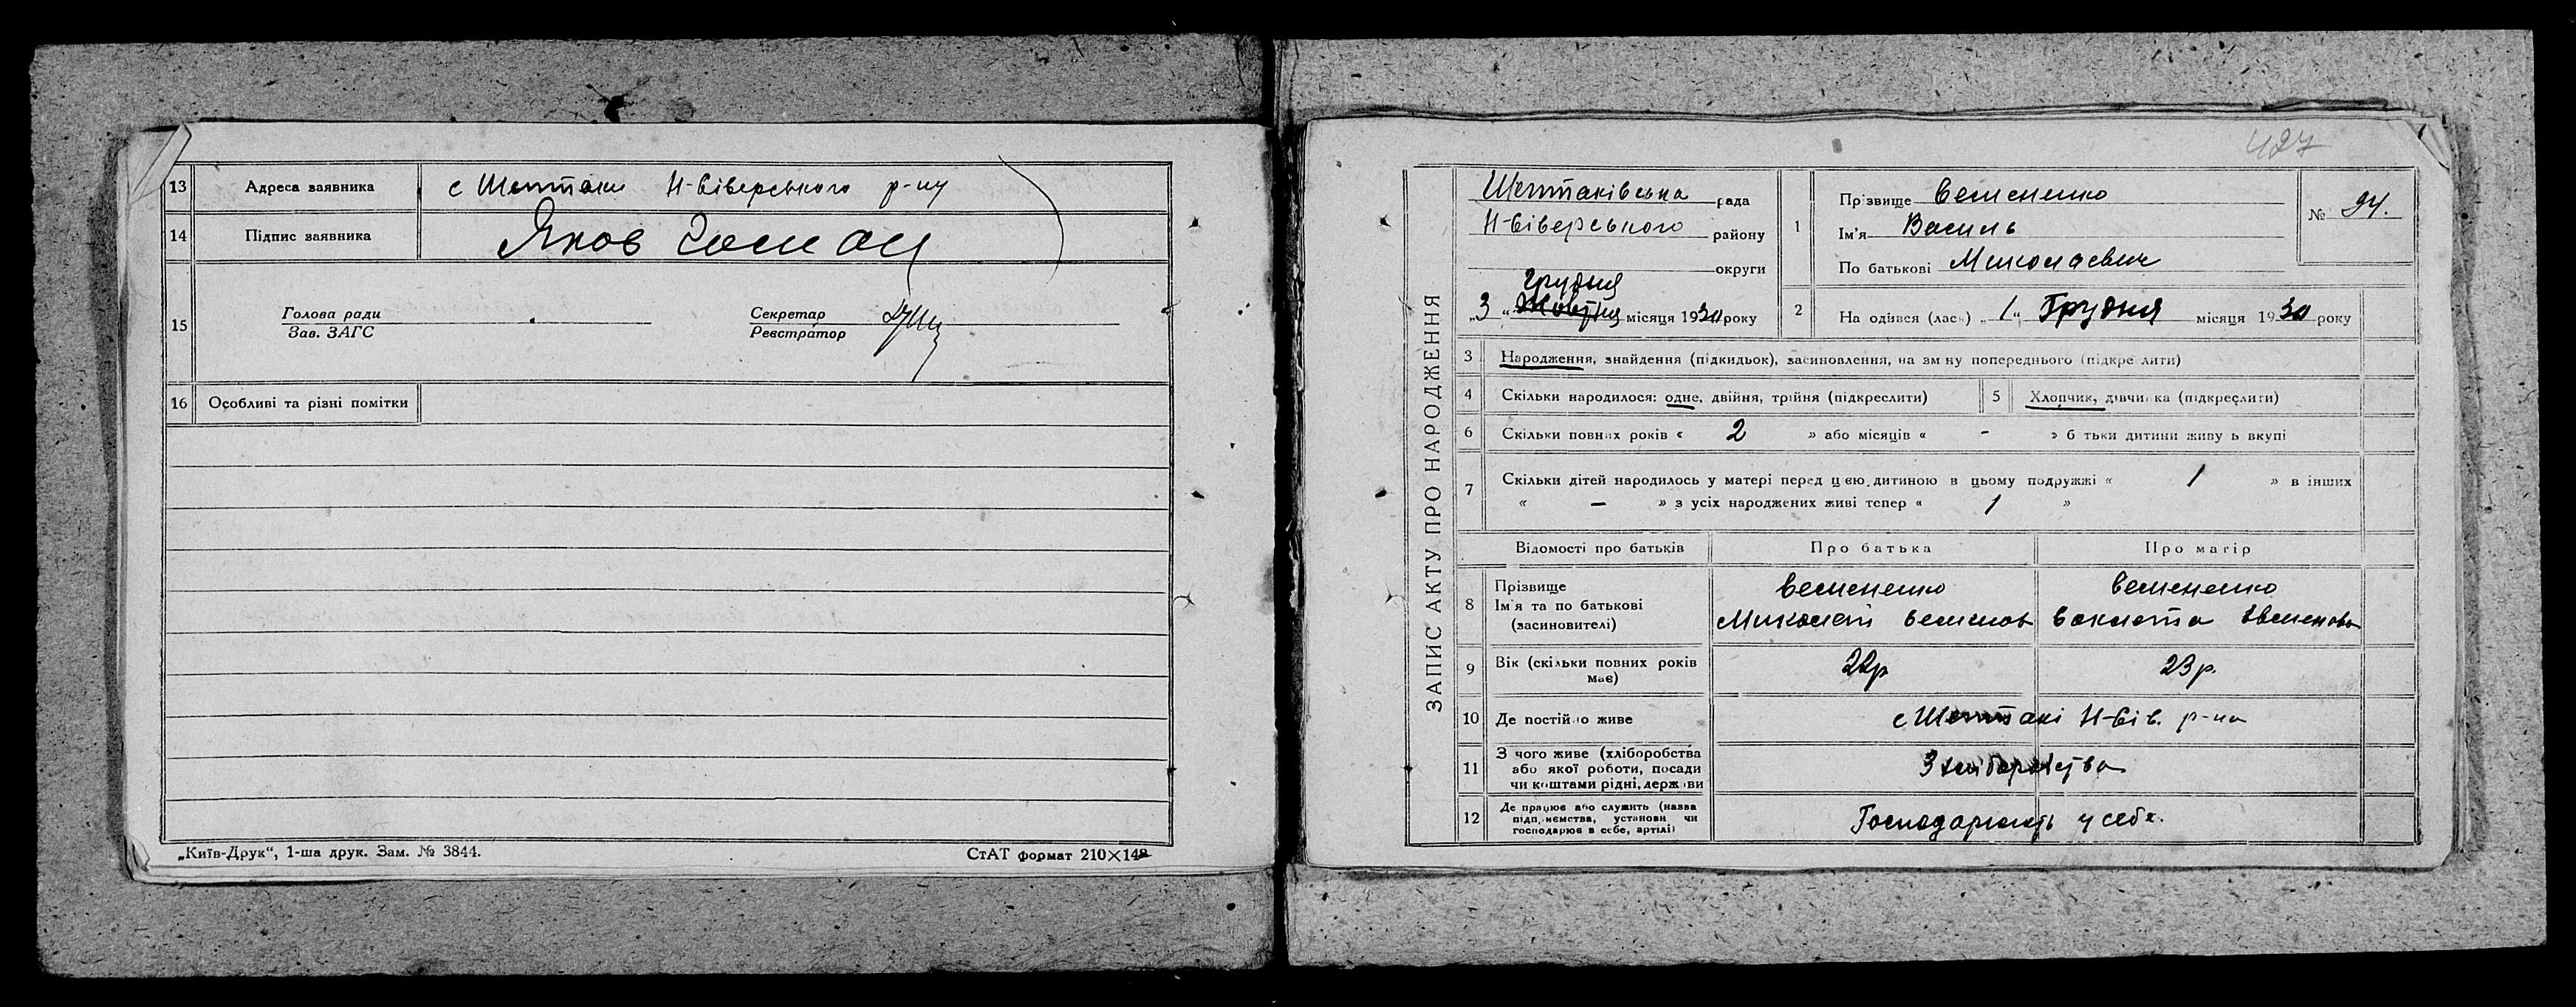 13 Адреса заявника с Шептаки Н-Сіверського р-ну
14 Підпис заявника Яков
15 Голова ради Секретар
Зав. ЗАГС Реєстратор
16 Особливі та різні помітки
„Київ-Друк“, 1-ша друк. Зам. № 3844. СтАТ формат 210×148
427
ЗАПИС АКТУ ПРО НАРОДЖЕННЯ
Шептаківська рада
Н-Сіверського району
округи
Грудня
„3“ Жовтня місяця 1930 року
1 Прізвище Семененко
Ім'я Василь
По батькові Миколаевич
№ 94.
2 На одився (лась) „1“ Грудня місяця 1930 року
3 Народження, знайдення (підкидьок), засиновлення, на зм ну попереднього (підкре лити)
4 Скільки народилося: одне, двійня, трійня (підкреслити) 5 Хлопчик, дівчинка (підкреслити)
6 Скільки повних років « 2 » або місяців « - » б тьки дитини живу ь вкупі
7 Скільки дітей народилось у матері перед цією дитиною в цьому подружжі « 1 » в інших
« – » з усіх народжених живі тепер « 1 »
Відомості про батьків Про батька Про матір
8 Прізвище Семененко Семененко
Ім'я та по батькові Миколай Семенов
(засиновителі)
9 Вік (скільки повних років має) 22р 23р.
10 Де постійно живе с Шептакі Н-Сів. р-на
11 З чого живе (хліборобства
або якої роботи, посади
чи коштами рідні, держави З хліборобства
12 Де працює або служить (назва
підприємства, установи чи
господарює в себе, артілі) Господарюють у себе.